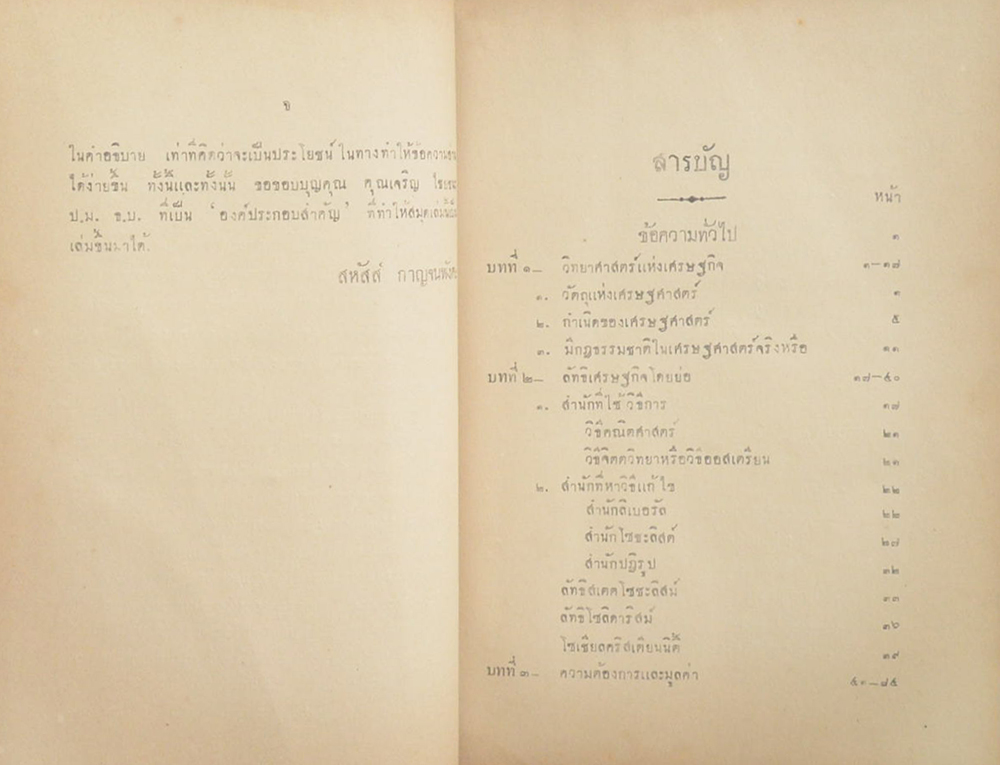 ข
ในคำอธิบาย เท่าที่คิดว่าจะเป็นประโยชน์ ในทางทำให้ข้อความ
ได้ง่ายขึ้น ทั้งนี้และทั้งนั้น ขอขอบบุญคุณ คุณเจริญ
ป.ม. ช.บ. ที่เป็น ‘องค์ประกอบสำคัญ’ ที่ทำให้สมุดเล่มนี้
เล่มขึ้นมาได้.
สหัสส์
สารบัญ
หน้า
ข้อความทั่วไป ๑
บทที่ ๑_ วิทยาศาสตร์แห่งเศรษฐกิจ ๑—๑๗
๑. วัตถุแห่งเศรษฐศาสตร์ ๑
๒. กำเนิดของเศรษฐศาสตร์ ๕
๓. มีกฎธรรมชาติในเศรษฐศาสตร์จริงหรือ ๑๑
บทที่ ๒_ ลัทธิเศรษฐกิจโดยย่อ ๑๗—๔๐
๑. สำนักที่ใช้วิธีการ ๑๗
วิธีคณิตศาสตร์ ๒๑
วิธีจิตตวิทยาหรือวิธีออสเตรียน ๒๑
๒. สำนักที่หาวิธีแก้ไข ๒๒
สำนักลิเบอรัล ๒๒
สำนักโซชะลิสต์ ๒๗
สำนักปฏิรูป ๓๒
ลัทธิสเตตโซชะลิสม์ ๓๓
ลัทธิโซลิดาริสม์ ๓๖
โซเชียลคริสเตียนนิตี้ ๓๙
บทที่ ๓_ ความต้องการและมูลค่า ๔๑—๘๕